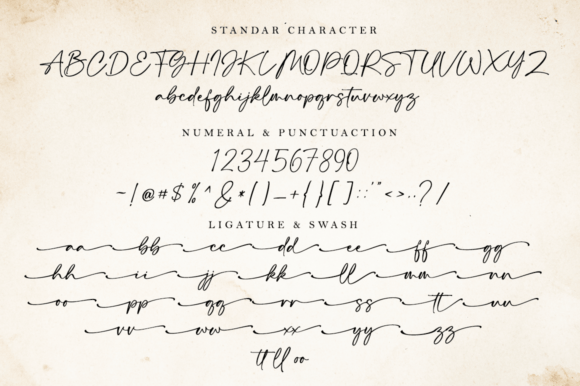 STANDAR CHARACTER
ABCDEFGHIJKLMOPQRSTUVWXYZ
abcdefghijklmnopqrstuvwxyz
NUMERAL & PUNCTUACTION
1234567890
~!@#$%^&*()_+{}[]::'"<>..?/
LIGATURE & SWASH
aa bb cc dd ee ff gg
hh ii jj kk ll mm nn
oo pp qq rr ss tt uu
vv ww xx yy zz
tt ll oo